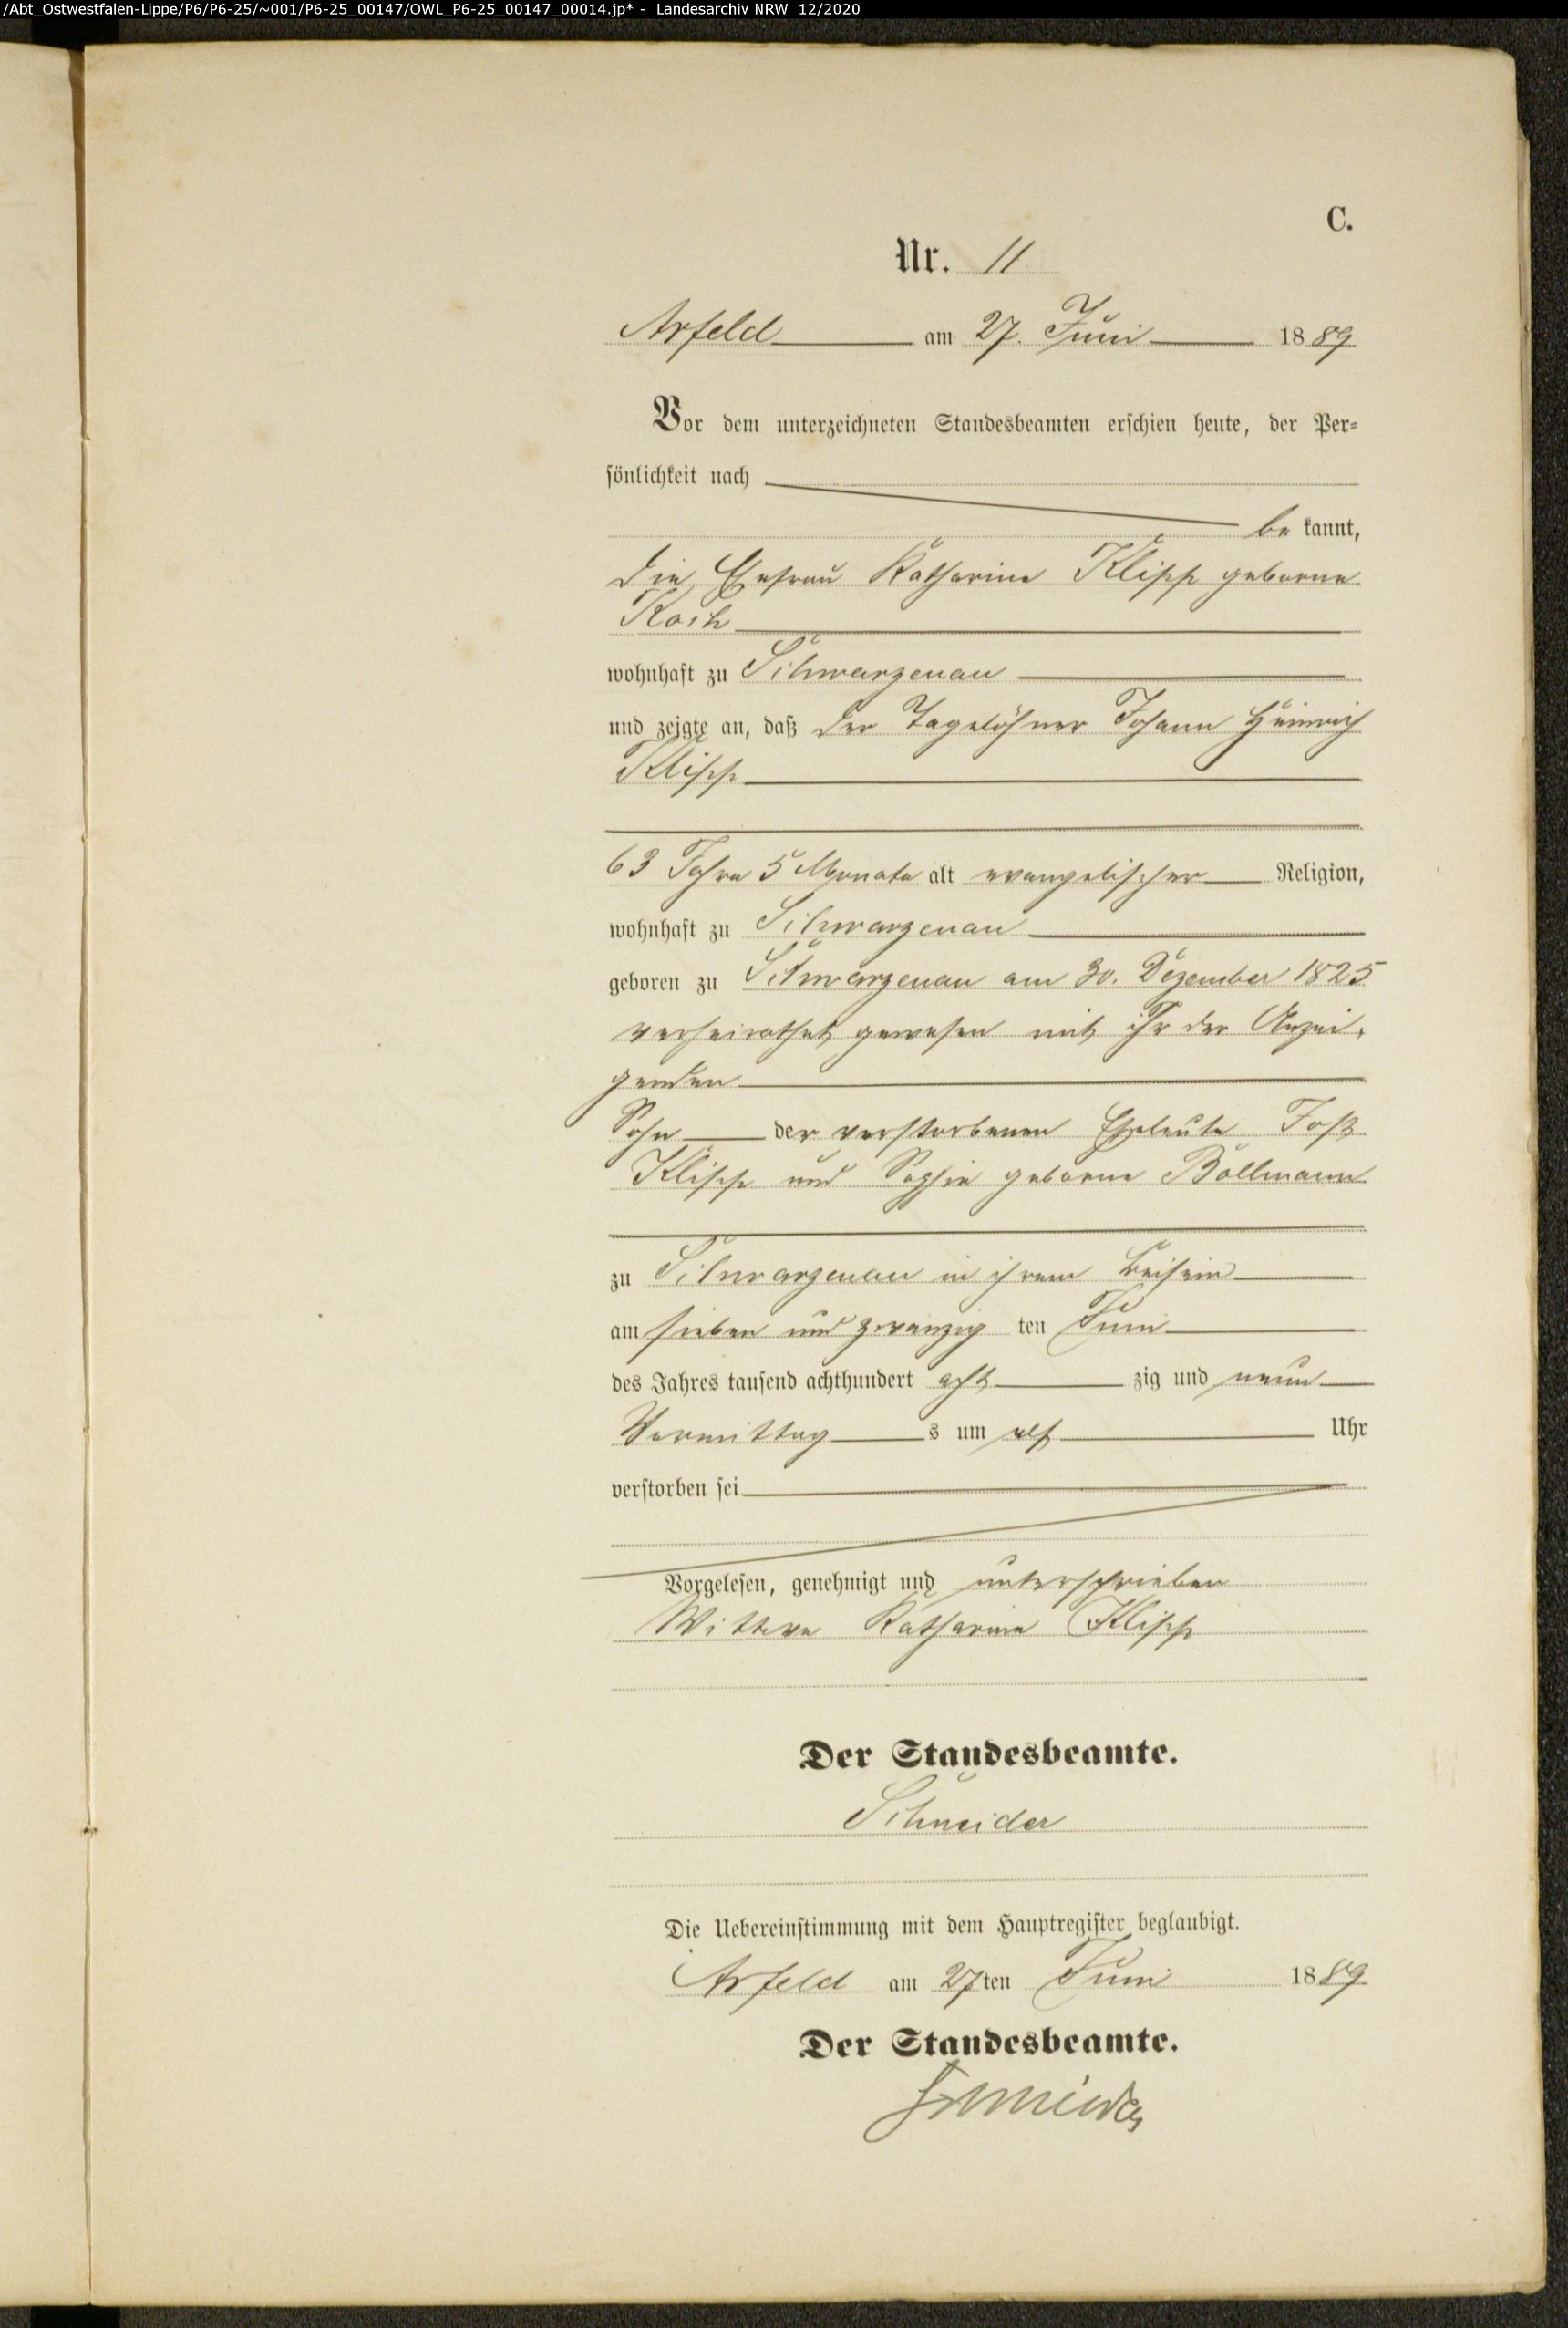 /Abt_Ostwestfalen-Lippe/P6/P6-25/~001/P6-25_00147/OWL_P6-25_00147_00014.jp* - Landesarchiv NRW 12/2020
C.
Nr. 11
Arfeld am 27. Juni 1889
Vor dem unterzeichneten Standesbeamten erschien heute, der Per-
sönlichkeit nach
be kannt,
die Ehefrau Katharine Klipp geborne
Koch
wohnhaft zu Schwarzenau
und zeigte an, daß der Tagelöhner Johann Heinrich
Klipp
63 Jahre 5 Monate alt evangelischer Religion,
wohnhaft zu Schwarzenau
geboren zu Schwarzenau am 30. Dezember 1825
verheirathet gewesen mit ihr der Anzei-
genden
Sohn der verstorbenen Eheleute Jost
Klipp und Sophie geborne Böllmann
zu Schwarzenau in ihrem Beisein
am sieben und zwanzig ten Juni
des Jahres tausend achthundert acht zig und neun
Vormittag s um elf Uhr
verstorben sei
Vorgelesen, genehmigt und unterschrieben
Wittwe Katharine Klipp
Der Standesbeamte.
Schneider
Die Uebereinstimmung mit dem Hauptregister beglaubigt.
Arfeld am 27ten Juni 1889
Der Standesbeamte.
Schneider